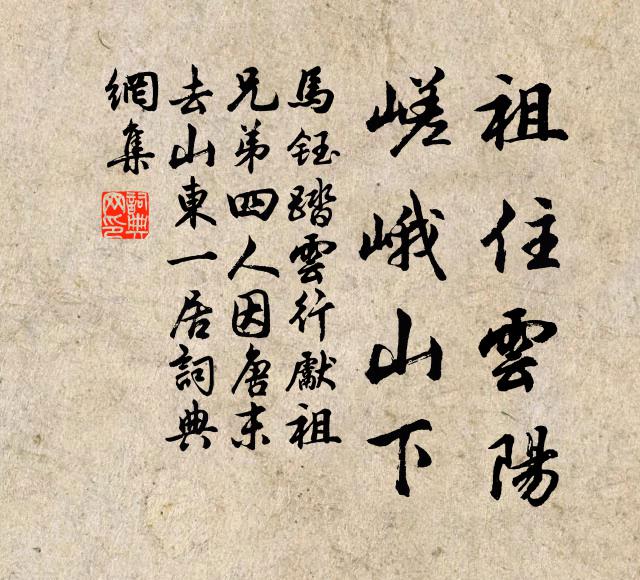 祖住雲陽
嵯峨山下
馬鈺踏雲行獻祖
兄弟四人因唐末
去山東一居詞典
網集
詞典
网印